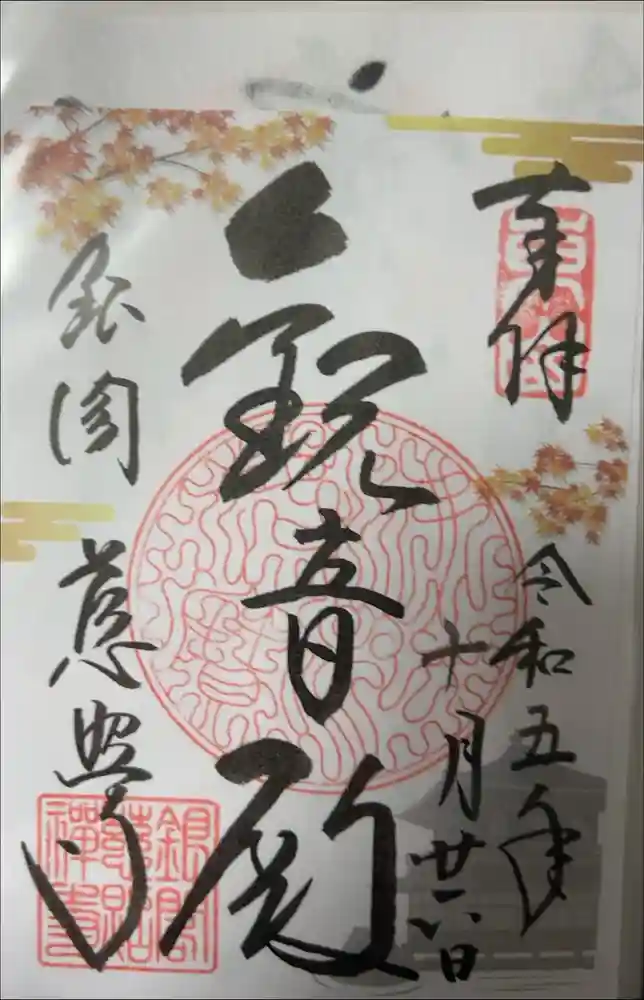 奉拝
令和五年
十月廿六日
観音殿
銀閣
慈照寺
銀閣
慈照
禪寺